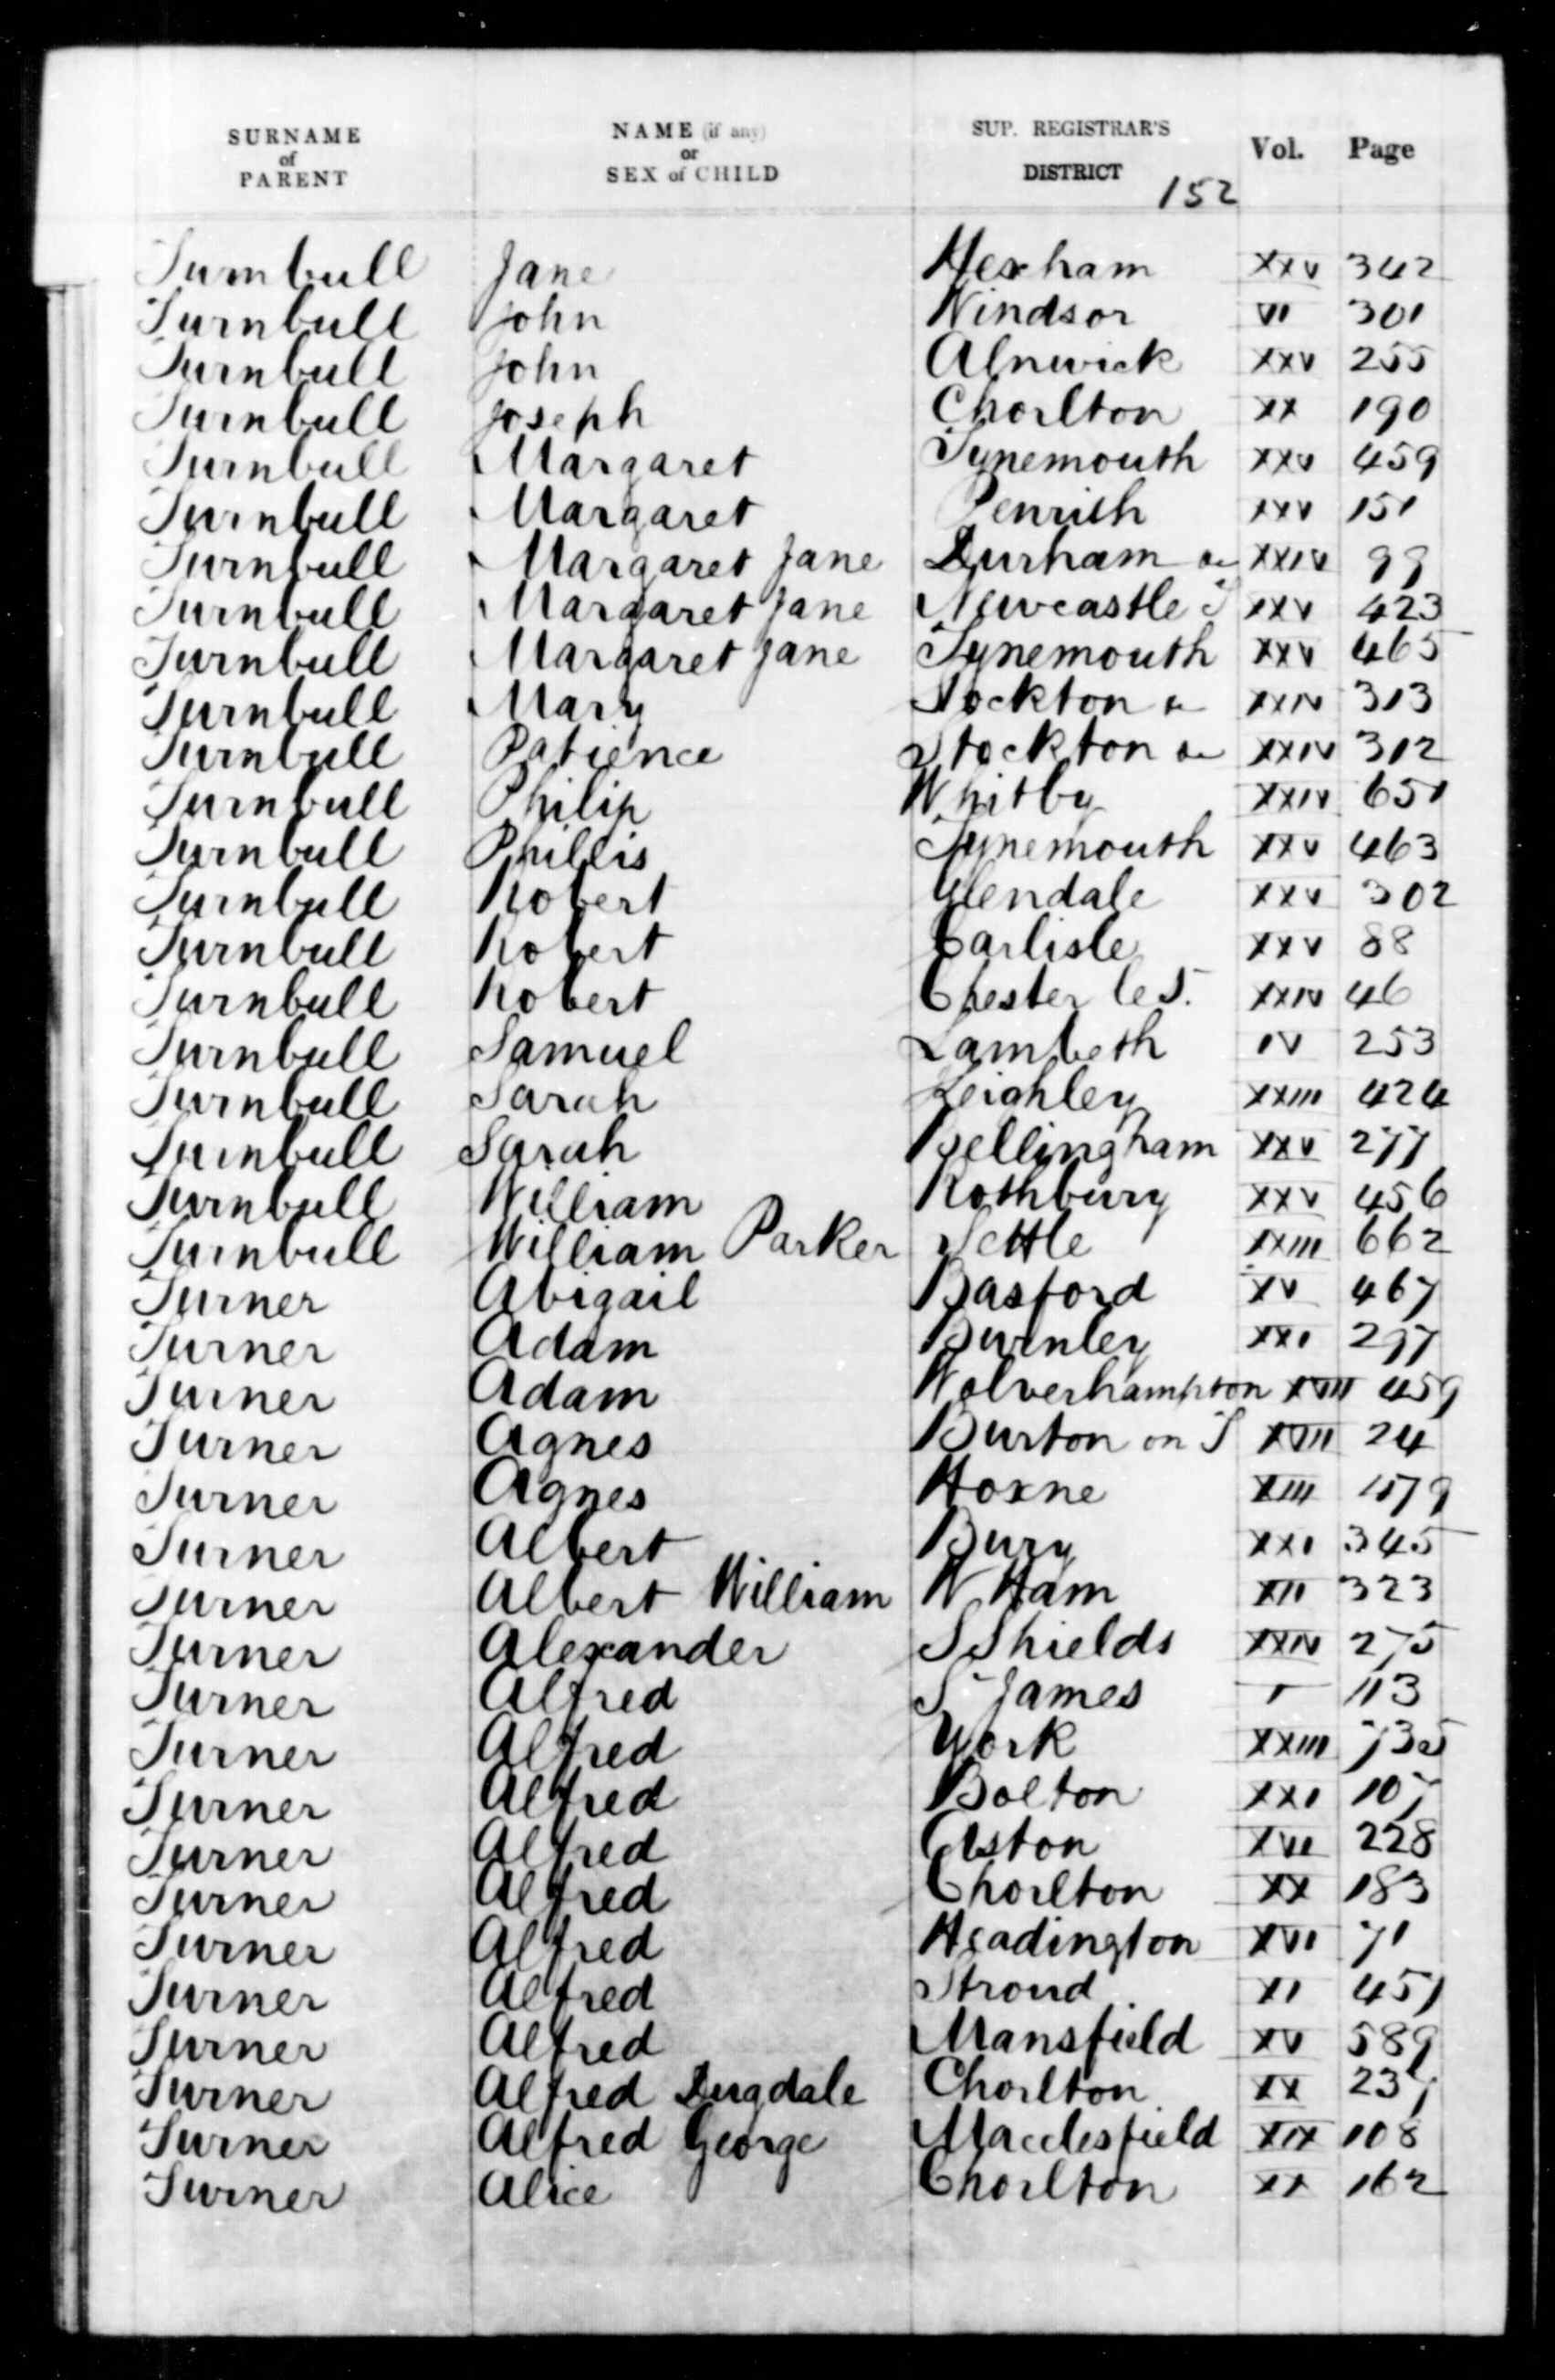 SURNAME of PARENT NAME (if any) or SEX of CHILD SUP. REGISTRAR'S DISTRICT Vol. Page
152
Turnbull Jane Hexham XXV 342
Turnbull John Windsor VI 301
Turnbull John Alnwick XXV 255
Turnbull Joseph Chorlton XX 190
Turnbull Margaret Tynemouth XXV 459
Turnbull Margaret Penrith XXV 151
Turnbull Margaret Jane Durham &c XXIV 99
Turnbull Margaret Jane Newcastle T XXV 423
Turnbull Margaret Jane Tynemouth XXV 465
Turnbull Mary Stockton &c XXIV 313
Turnbull Patience Stockton &c XXIV 312
Turnbull Philip Whitby XXIV 651
Turnbull Phillis Tynemouth XXV 463
Turnbull Robert Glendale XXV 302
Turnbull Robert Carlisle XXV 88
Turnbull Robert Chester le S. XXIV 46
Turnbull Samuel Lambeth IV 253
Turnbull Sarah Keighley XXIII 424
Turnbull Sarah Bellingham XXV 277
Turnbull William Rothbury XXV 456
Turnbull William Parker Settle XXIII 662
Turner Abigail Basford XV 467
Turner Adam Burnley XXI 297
Turner Adam Wolverhampton XVII 459
Turner Agnes Burton on T XVII 24
Turner Agnes Hoxne XIII
Turner Albert Bury XXI 345
Turner Albert William W Ham XII 323
Turner Alexander S Shields XXIV 275
Turner Alfred St James I 113
Turner Alfred York XXIII 735
Turner Alfred Bolton XXI 107
Turner Alfred Aston XVI 228
Turner Alfred Chorlton XX 183
Turner Alfred Headington XVI 71
Turner Alfred Stroud XI 451
Turner Alfred Mansfield XV 589
Turner Alfred Dugdale Chorlton XX 237
Turner Alfred George Macclesfield XIX 108
Turner Alice Chorlton XX 162